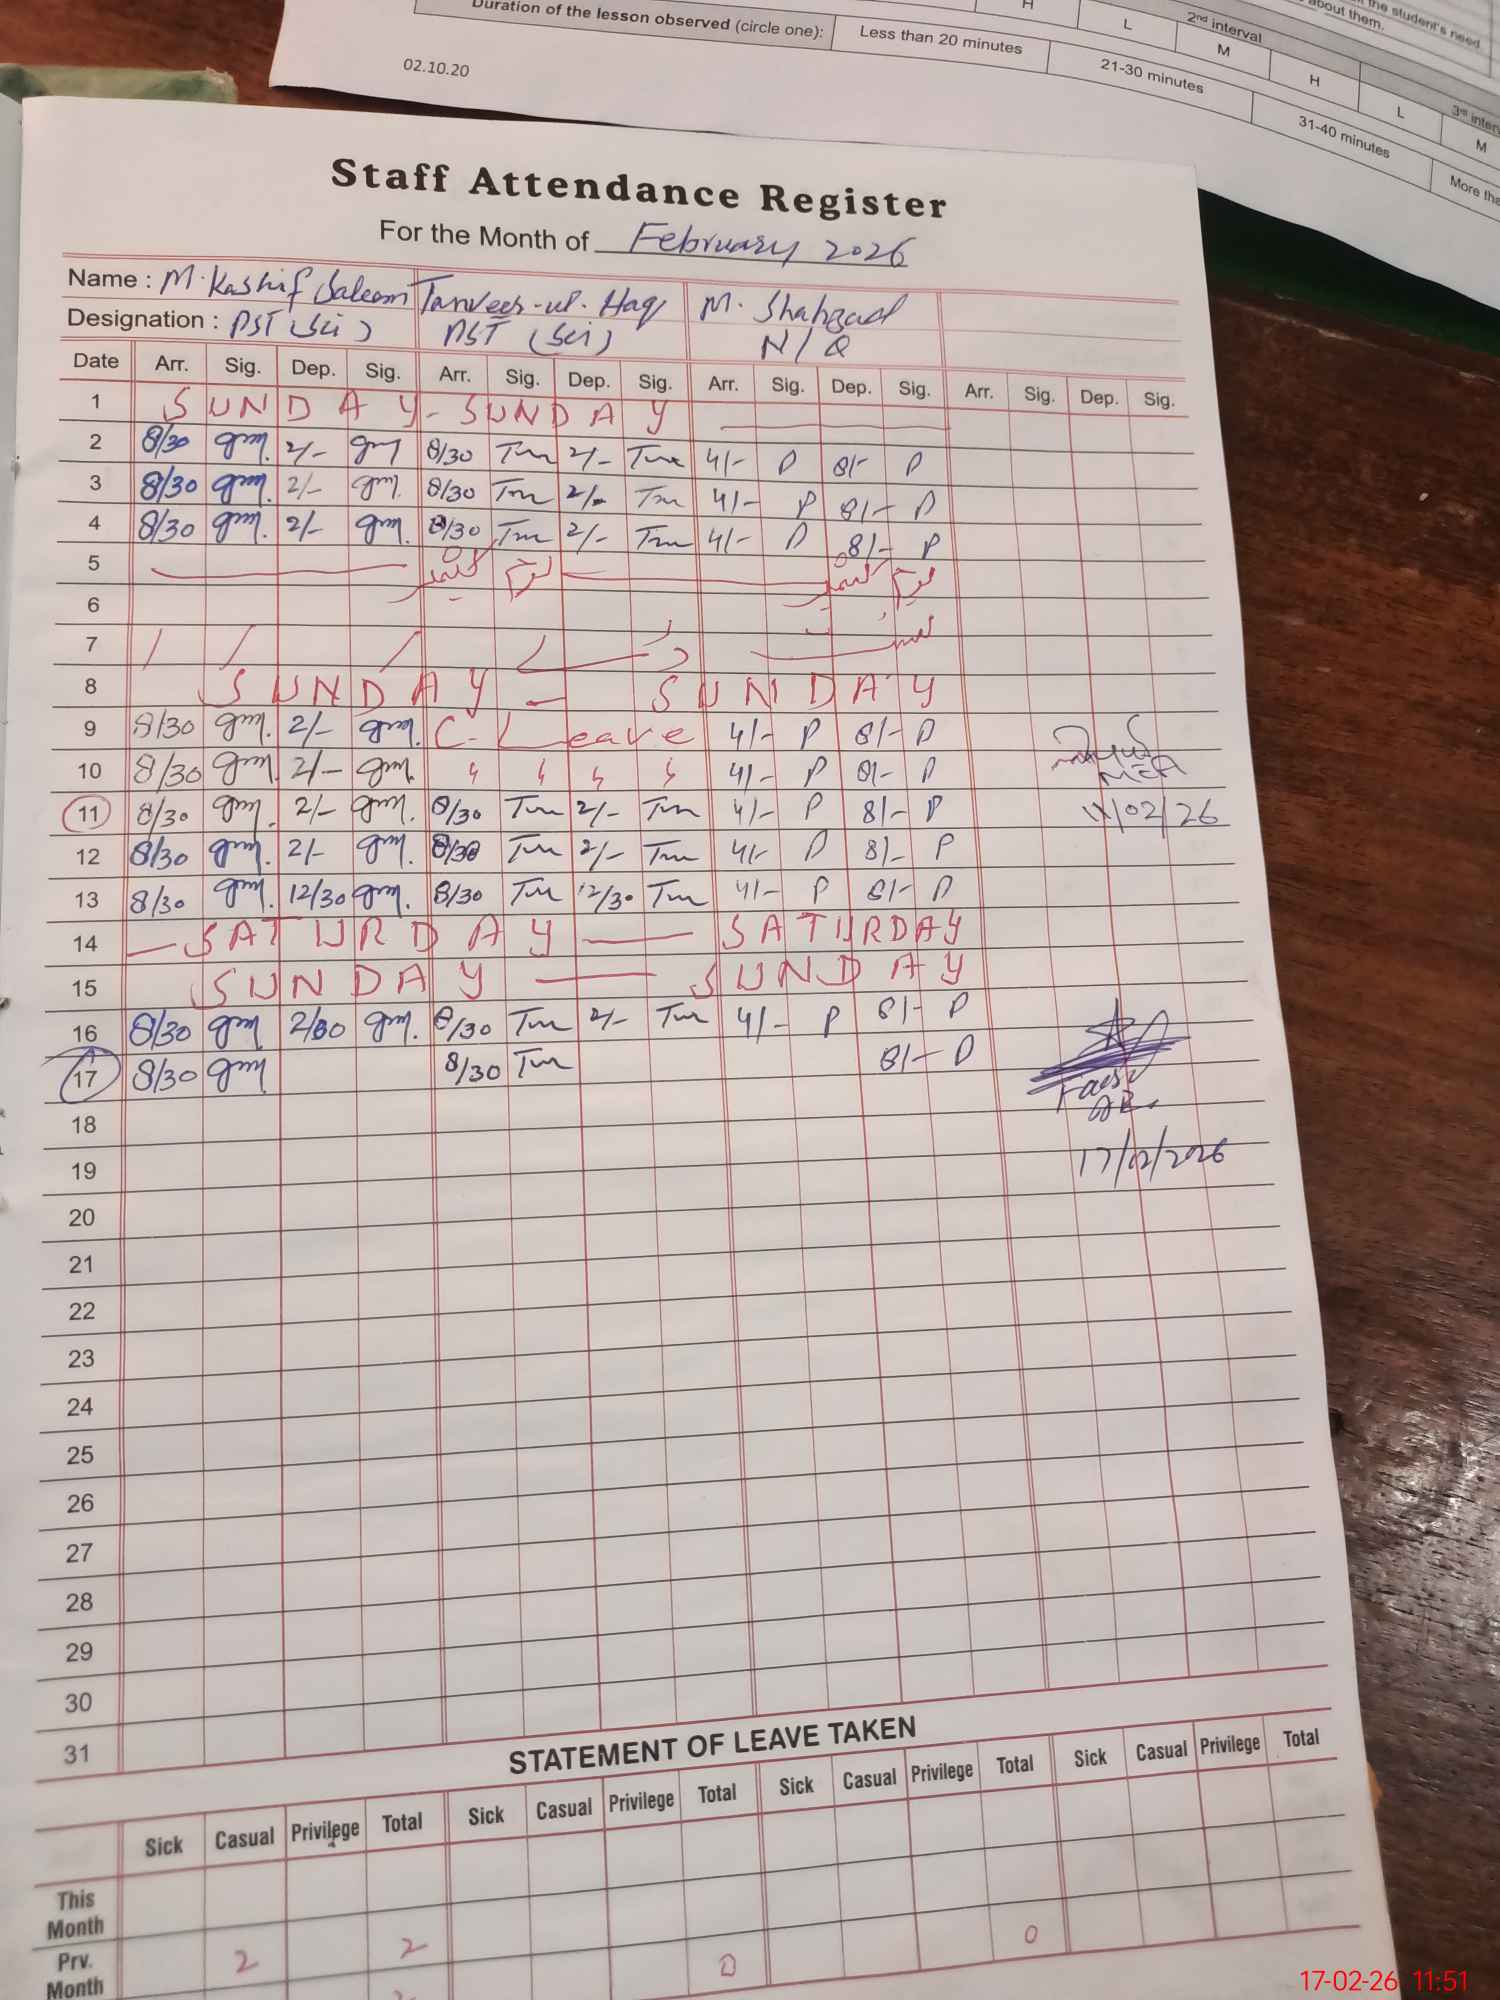 Duration of the lesson observed (circle one): Less than 20 minutes 21-30 minutes 31-40 minutes More tha
H L 2nd interval M H L 3rd interv M
the student's need
about them.
02.10.20
Staff Attendance Register
For the Month of February 2026
Name : M. Kashif Saleem Tanveer-ul-Haq M. Shahzad
Designation : PST (Sci) PST (Sci) N/Q
Date Arr. Sig. Dep. Sig. Arr. Sig. Dep. Sig. Arr. Sig. Dep. Sig. Arr. Sig. Dep. Sig.
1 SUNDAY - SUNDAY
2 8/30 gm. 2/- gm 8/30 Tm 2/- Tm 4/- P 8/- P
3 8/30 gm. 2/- gm. 8/30 Tm 2/- Tm 4/- P 8/- P
4 8/30 gm. 2/- gm. 8/30 Tm 2/- Tm 4/- P 8/- P
5
6
7
8 SUNDAY - SUNDAY
9 8/30 gm. 2/- gm. C-Leave 4/- P 8/- P
10 8/30 gm. 2/- gm. 4/- P 8/- P
MEA
11 8/30 gm. 2/- gm. 8/30 Tm 2/- Tm 4/- P 8/- P 11/02/26
12 8/30 gm. 2/- gm. 8/30 Tm 2/- Tm 4/- P 8/- P
13 8/30 gm. 12/30 gm. 8/30 Tm 12/30 Tm 4/- P 8/- P
14 — SATURDAY — SATURDAY
15 SUNDAY — SUNDAY
16 8/30 gm 2/30 gm. 8/30 Tm 2/- Tm 4/- P 8/- P
17 8/30 gm 8/30 Tm 8/- P
18
19 17/02/2026
20
21
22
23
24
25
26
27
28
29
30
31
STATEMENT OF LEAVE TAKEN
Sick Casual Privilege Total Sick Casual Privilege Total Sick Casual Privilege Total Sick Casual Privilege Total
This Month
Prv. Month 2 2 0 0
17-02-26 11:51